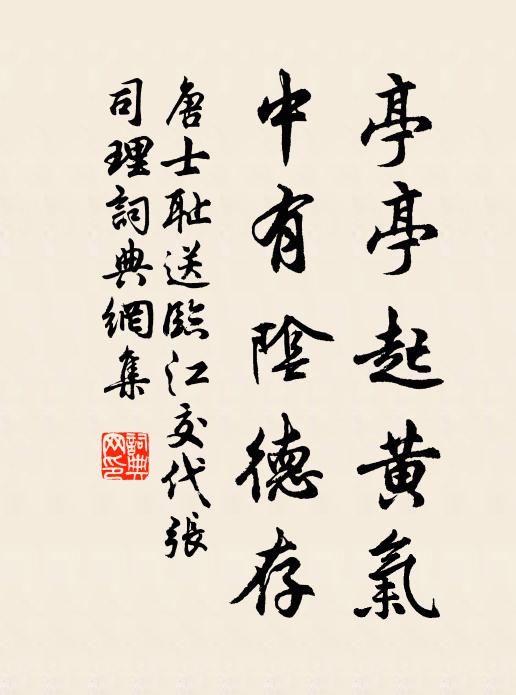 亭亭起黄氣
中有陰德存
唐士耻送臨江交代張
司理詞典網集
詞典網印